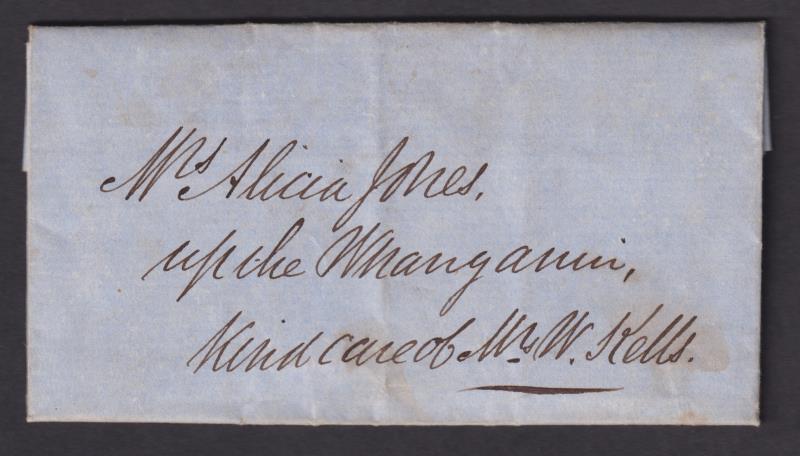 Mrs Alicia Jones,
up the Whangamin,
Kind care of Mrs W. Kells.